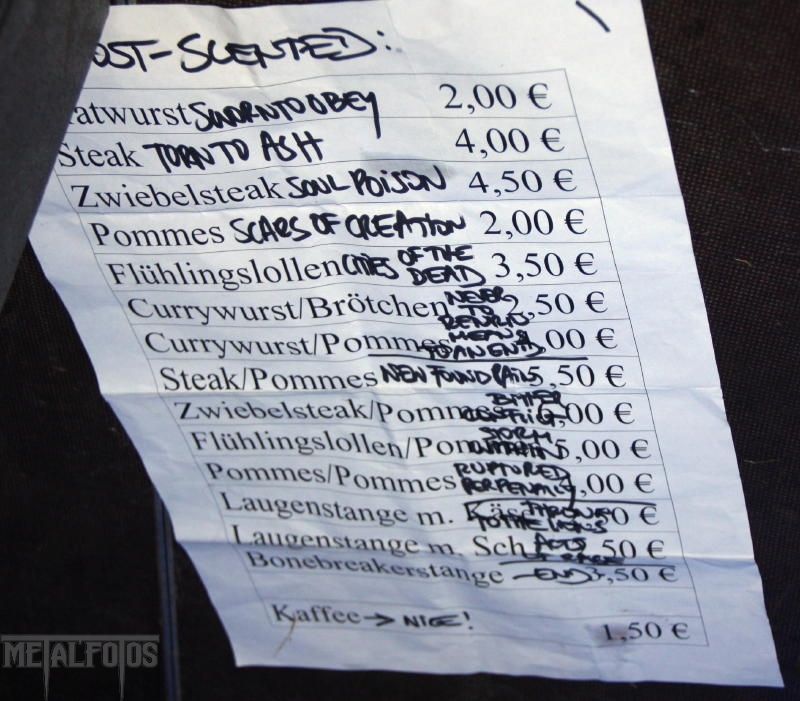 OST-SCENTED:
atwurst SWORN TO OBEY 2,00 €
Steak TORN TO ASH 4,00 €
Zwiebelsteak SOUL POISON 4,50 €
Pommes SCARS OF CREATION 2,00 €
Flühlingslollen CITIES OF THE DEAD 3,50 €
Currywurst/Brötchen NEVER TO 2,50 €
Currywurst/Pommes MEANS TO AN END ,00 €
Steak/Pommes NEW FOUND PAIN 5,50 €
Zwiebelsteak/Pommes BITTER ,00 €
Flühlingslollen/Pom STORM WITHIN 5,00 €
Pommes/Pommes RUPTURED ,00 €
Laugenstange m. Käse THROWN TO THE LIONS 0 €
Laugenstange m. Sch ACTS 50 €
Bonebreakerstange END 3,50 €
Kaffee → NICE! 1,50 €
METALFOTOS